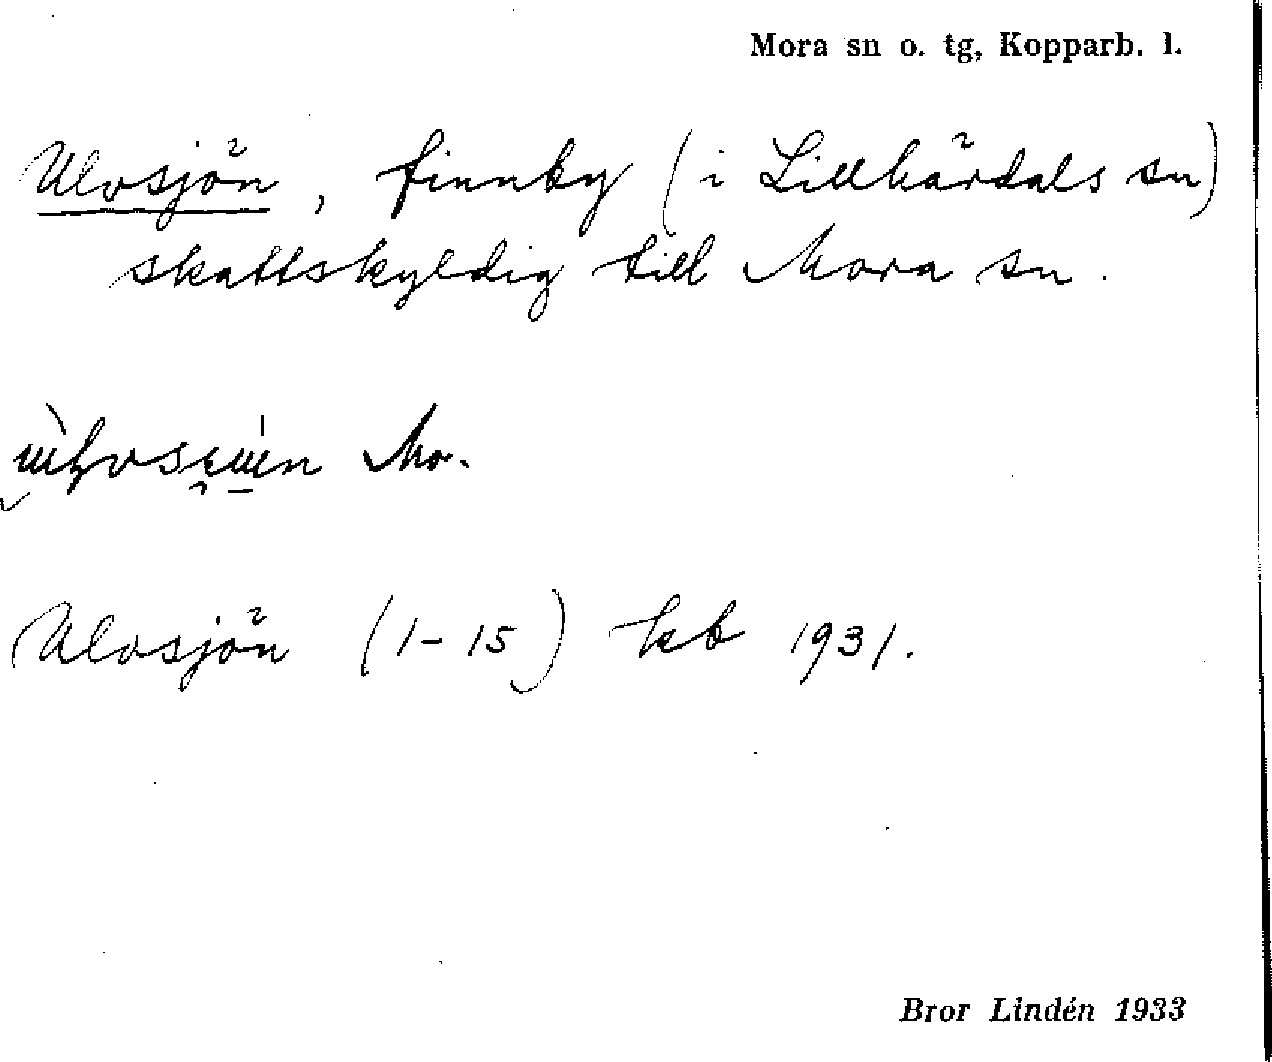 Mora sn o. tg, Kopparb. l.
Ulvsjön, finnby (i Lillhärdals sn)
skattskyldig till Mora sn.
Mo.
Ulvsjön (1-15) kb 1931.
Bror Lindén 1933